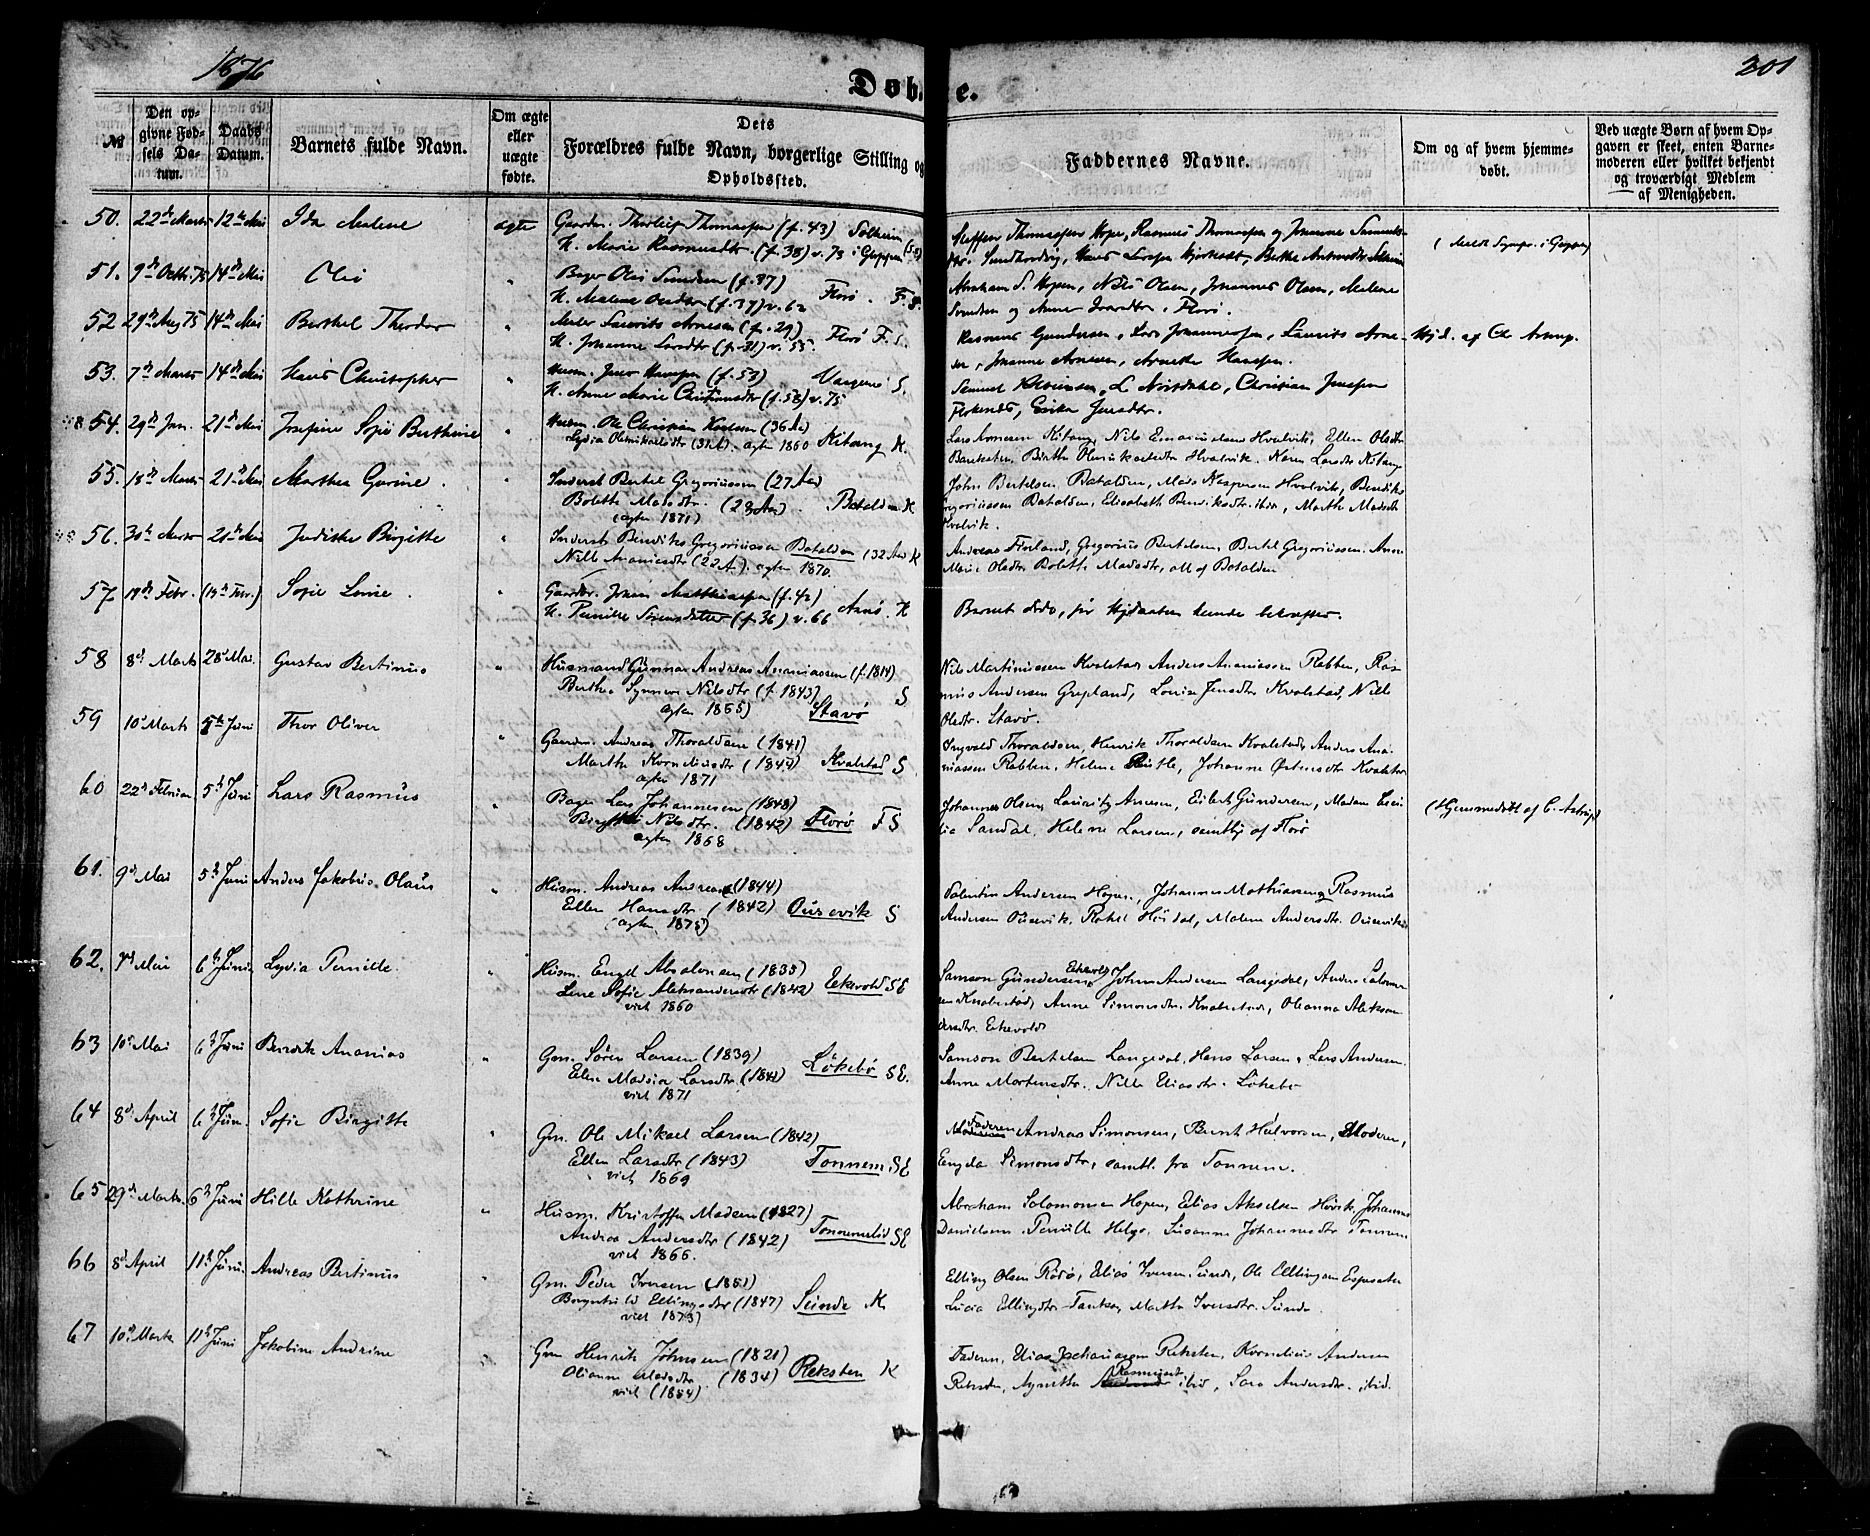 1876
Døbte.
201
№
Den opgivne Fødsels Datum.
Daabs Datum.
Barnets fulde Navn.
Om ægte eller uægte fødte.
Dets Forældres fulde Navn, borgerlige Stilling og Opholdssted.
Faddernes Navne.
Om og af hvem hjemmedøbt.
Ved uægte Børn af hvem Opgaven er skeet, enten Barnemoderen eller hvilket bekjendt og troværdigt Medlem af Menigheden.
50. 22de Marts 12te Mai Ida Malene ægte Gaardm. Thorleif Thomassen (f. 43) Solheim
H. Marie Rasmusdtr. (f. 38) v. 73 i Gloppen
Steffen Thomassen Hope, Rasmus Thomassen og Johanne Samuels-
51. 9de Octbr. 75 14de Mai Olei " Bager Oleis Svendsen (f. 37)
H. Malene Olsdtr (f. 37) v. 62 Florø. F. S.
Abraham S. Hopen, Nils Olsen, Johannes Olsen, Malene
Svendsen og Anne Ivarsdtr, Florø.
52 29de Aug 75 14de Mai Berthel Theodor " Maler Laurits Arnesen (f. 29) Florø F. S.
H. Johanne Larsdtr (f. 31) v. 55.
Rasmus Gundersen, Lars Johannessen, Laurits Arne-
sen, Johanne Arnesen, Arnette Hanssen.
Hjd. af Ch Astrup.
53. 7de Marts 14de Mai Hans Christopher " Husm. Jens Hanssen (f. 53) S.
H. Anne Marie Christiansdtr (f. 58) v. 75
54. 29de Jan. 21de Mai Josefine Sofie Berthine " Husm. Ole Christian Karlsen (36 Aar)
Lydia Olemikaelsdtr (31 A). ægtev 1860 Kitang K.
Lars Arnesen Kitang, Nils Emanuelsen Hvalvik, Ellen Olsdtr
Barekster, Birthe Olemikaelsdtr Hvalvik. Karen Larsdtr Kitang.
55. 18de Marts 21de Mai Marthea Gurine. " Inderst Bertel Gregoriussen (27 Aar)
Bolette Madsdtr. (28 Aar). Batalden K
(ægtev 1871)
John Bertelsen Batalden, Mads Kaspersen Hvalvik, Bendiks
Gregoriussen Batalden, Elisabeth Bendiksdtr ibid, Marthe Madsdtr
Hvalvik.
56. 30te Marts 21de Mai Judithe Birgitte " Inderst Bendiks Gregoriussen Batalden (32 Aar K
Nille Ananiasdtr (22 A). ægtev 1870.
Andreas Florland, Gregorius Bertelsen, Bertel Gregoriussen. Anne
Marie Olsdtr Bolette Madsdtr, all af Batalden
57 19de Febr. (19de Febr.) Sofie Lovise. " Gaardm. Johan Matthiassen (f. 42)
H. Pernille Sørensdatter (f. 36) v. 66 Arnø. K
Barnet døde, før Hjdaaben kunde bekræftes.
58 8d Marts 28d Mai. Gustav Bertinus " Husmand Gunnar Andreas Ananiassen (f. 1844)
Berthe Synneve Nilsdtr (f 1843) S
ægtev 1865) Stavø
Nils Martinussen Kvalstad, Anders Ananiassen Rabben, Ras-
mus Andersen Grepland, Lovise Jensdtr Kvalstad, Nille
Olsdtr. Stavø.
59 10d Marts 5te Juni Thor Oliver " Gaardm. Andreas Thoraldsen (1841)
Marthe Kornelisdtr (1849) Kvalstad S.
ægtev 1871
Ingvald Thoraldsen, Henrik Thoraldsen Kvalstad, Anders Ana-
niassen Rabben. Helene, Johanne Østensdtr Kvalstad
60 22de Februar 5te Juni Lars Rasmus " Bager Lars Johannesen (1848)
Birgitte Nilsdtr. (1842) Florø F S
ægtev 1868
Johannes Olsen, Lauritz Arnesen, Eilert Gundersen, Madam Ceci-
lie Sandal, Helene Larsen, samtlig af Florø
(Hjemmedøbt af C. Astrup)
61. 9d Mai 5te Juni Anders Jakobus Olaus " Husm. Andreas Andreas (1844)
Ellen Hansdtr. (1842) Ousevik S
(ægtev 1875)
Valentin Andersen Hopen, Johannes Mathiassen, Rasmus
Andersen Ousevik, Rakel Høydal, Malene Andersdtr. Ousevik
62. 7d Mai 6te Juni Lydia Pernille. " Husm. Engel Absalonsen (1835)
Lene Sofie Aleksandersdtr (1842 Eekevold SE
viet 1860
Samson Gundersen Eekevold, John Andersen Langedal, Anders Salomon-
sen Knabestad, Anne Simonsdtr. Knabestad, Oleanna Aleksan-
dersdtr. Eekevold
63 10d Mai 6te Juni Bendik Ananias " Gm. Søren Larsen (1839)
Eline Madsia Larsdtr (1841) Løkebø SE.
viet 1871
Samson Bertelsen Langedal, Hans Larsen, Lars Andersen.
Anne Mortensdtr. Nille Eliasdtr. Løkebø
64 8d April 6te Juni Sofie Birgitte " Gm. Ole Mikael Larsen (1842)
Ellen Larsdtr (1843) Tonnem. SE
viet 1869
Faderen Andreas Simonsen, Bernt Halvorsen, Moderen,
Engda Simonsdtr, samtl. fra Tonnem.
65 29d Marts. 6te Juni Hille Kathrine " Husm. Kristoffer Madsen (1827)
Andrea Andersdtr (1842) Tonnemelid SE
viet 1866.
Abraham Salomonsen Hopen, Elias Akselsen Høvik, Johannes
Danielsen. Pernille Helgø, Susanne Johannesdtr Tonnem
66 8d April 11te Juni. Andreas Bertinus " Gm. Peder Iversen (1851)
Borgehild Ellingsdtr (1847) Seinde K.
viet 1873)
Elling Olsen Rødø, Elias Iversen Seinde, Ole Ellingsen Espesæter
Lucia Ellingsdtr Tansøy, Marthe Iversdtr. Seinde.
67 10d Marts 11te Juni Jakobine Andrine " Gm Henrik Johnsen (1821)
Olianne Madsdtr (1834) Reksten K
viet (1854)
Faderen, Elias Zachariassen Reksten, Kornelius Andersen
Reksten, Agnethe Rasmusdtr ibid, Sara Andersdtr. ibid.